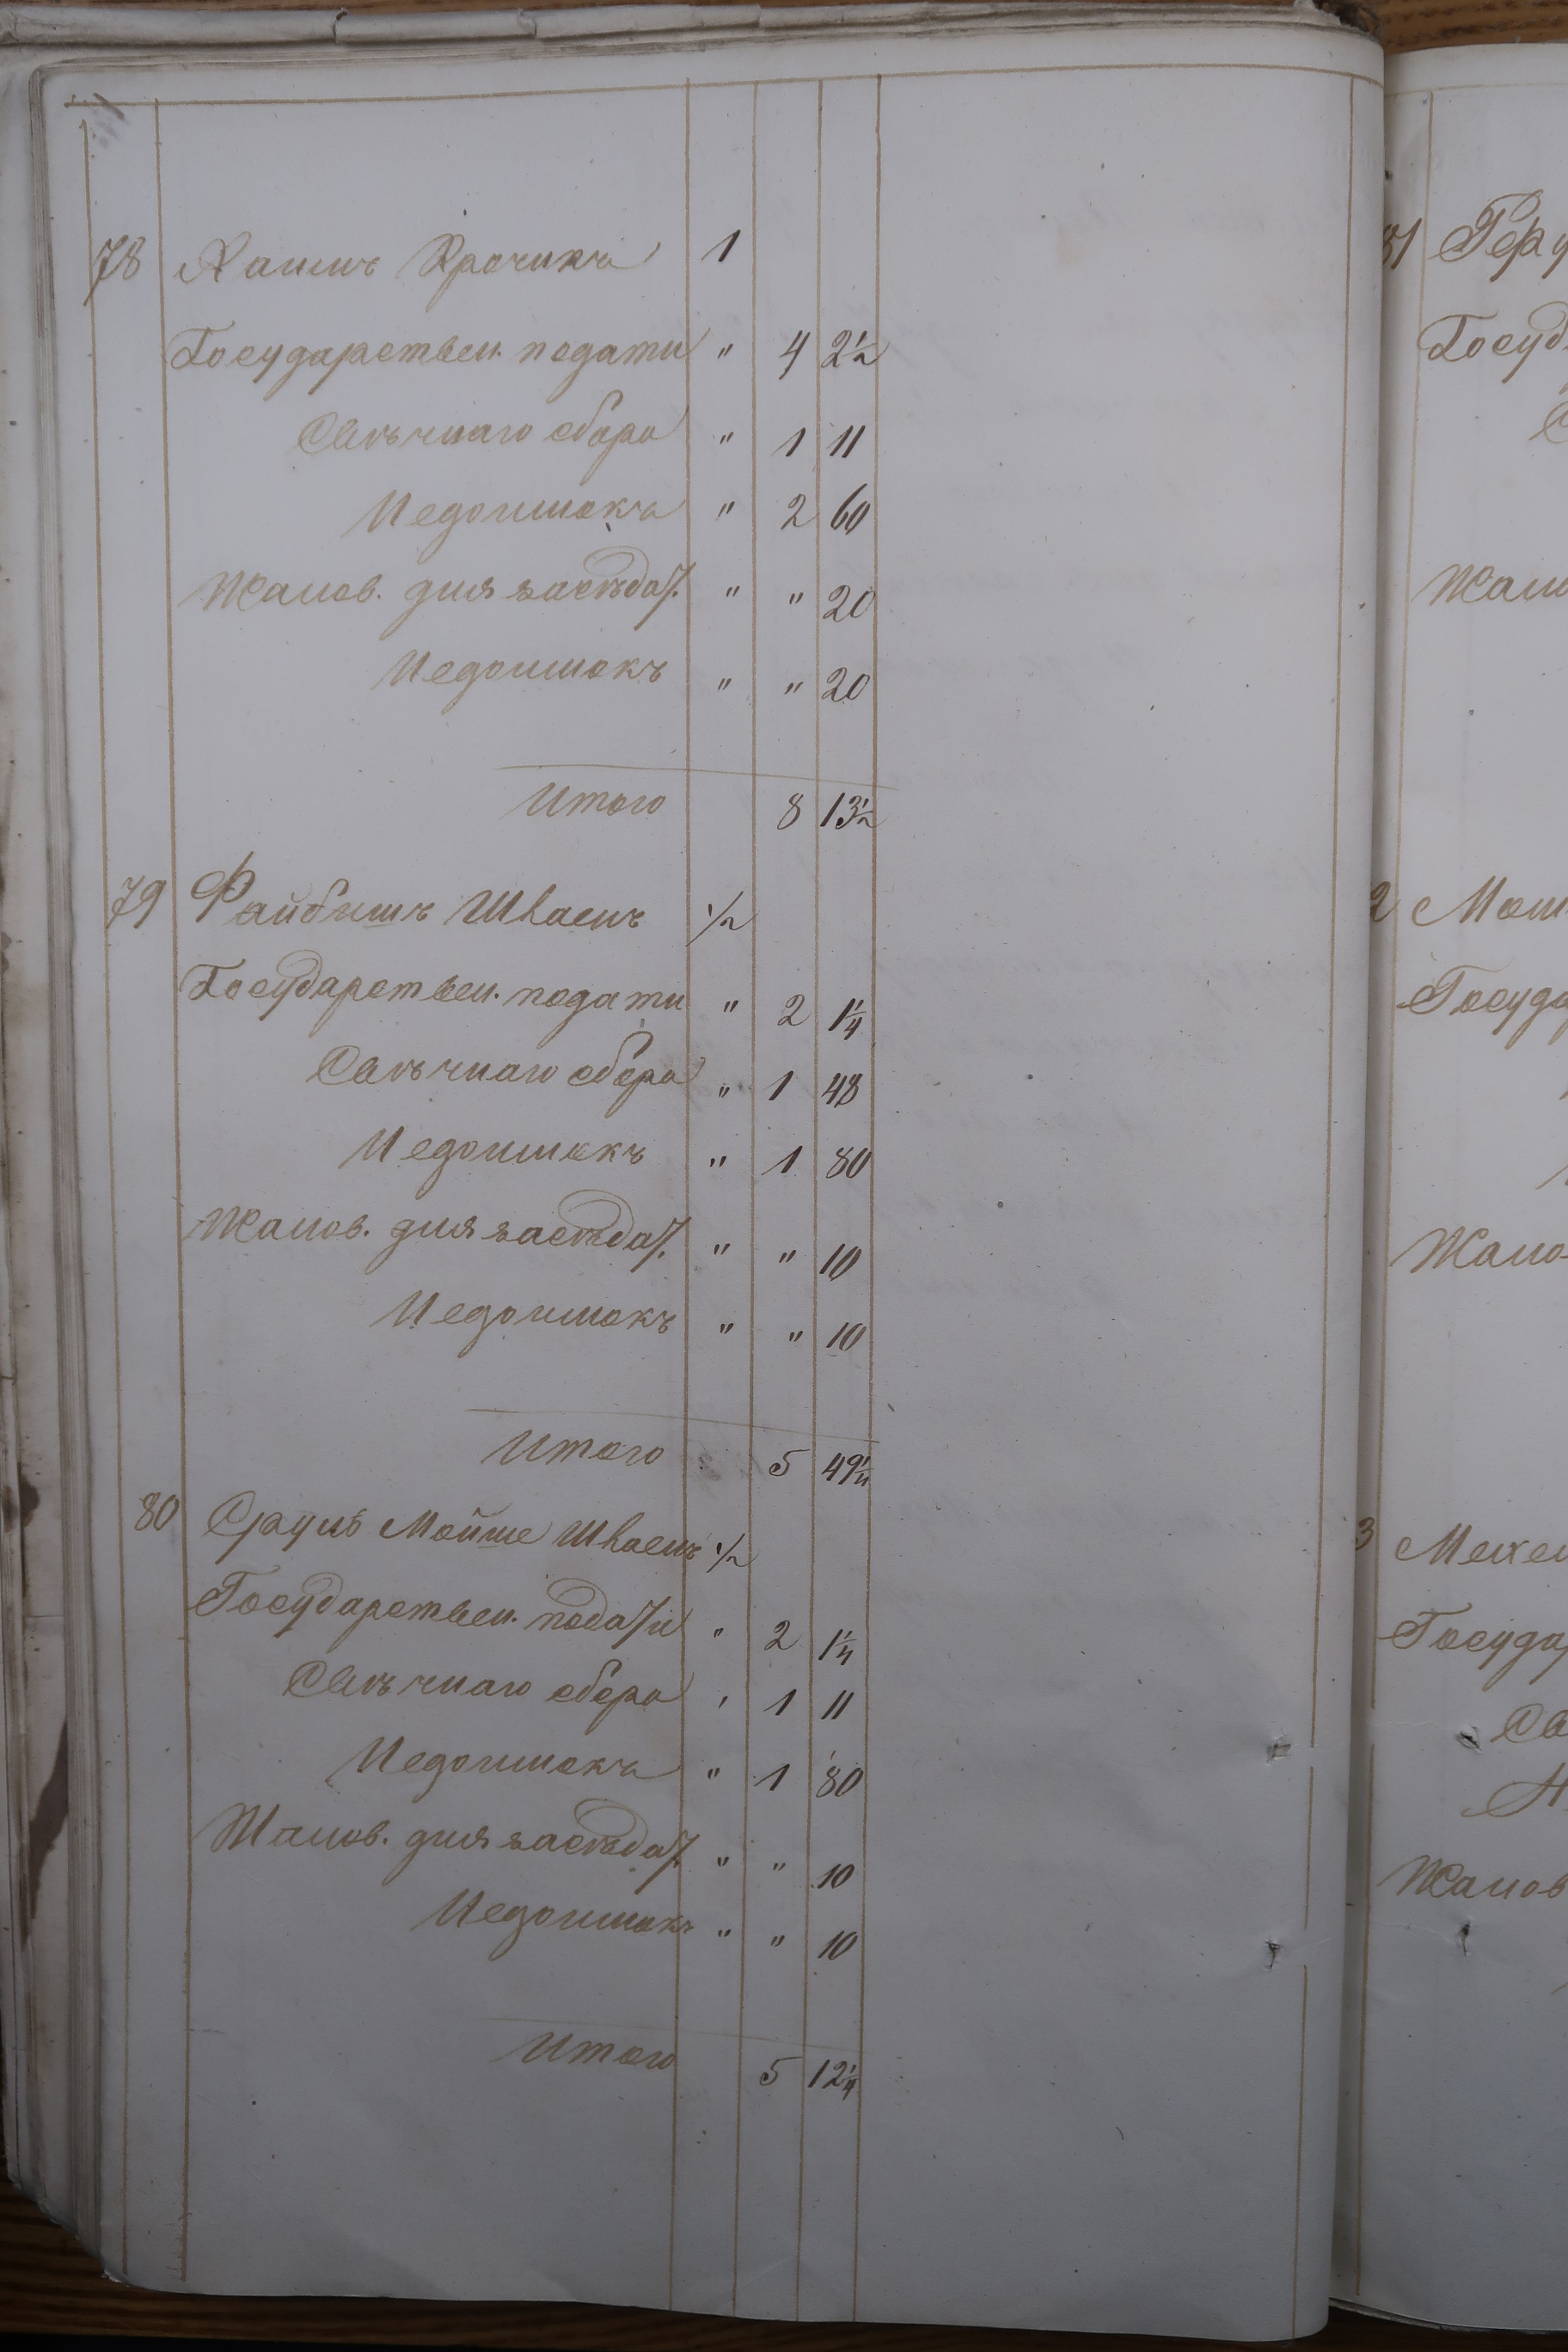 78 Хаимъ Крочикъ 1
Государствен. подати " 4 2½
Свѣчнаго сбора " 1 11
Недоимокъ " 2 60
Жалов. для засѣдат. " " 20
Недоимокъ " " 20
Итого 8 13½
79 Файбишъ Шваенъ ½
Государствен. подати " 2 1¼
Свѣчнаго сбора " 1 48
Недоимокъ " 1 80
Жалов. для засѣдат. " " 10
Недоимокъ " " 10
Итого 5 49¼
80 Срулъ Мойше Шваенъ ½
Государствен. подати " 2 1¼
Свѣчнаго сбора " 1 11
Недоимокъ " 1 80
Жалов. для засѣдат. " " 10
Недоимокъ " " 10
Итого 5 12¼
81 Гер
Госуд
Жало
2 Мош
Госуда
Жало
3 Мехел
Государ
Св
Н
Жалов